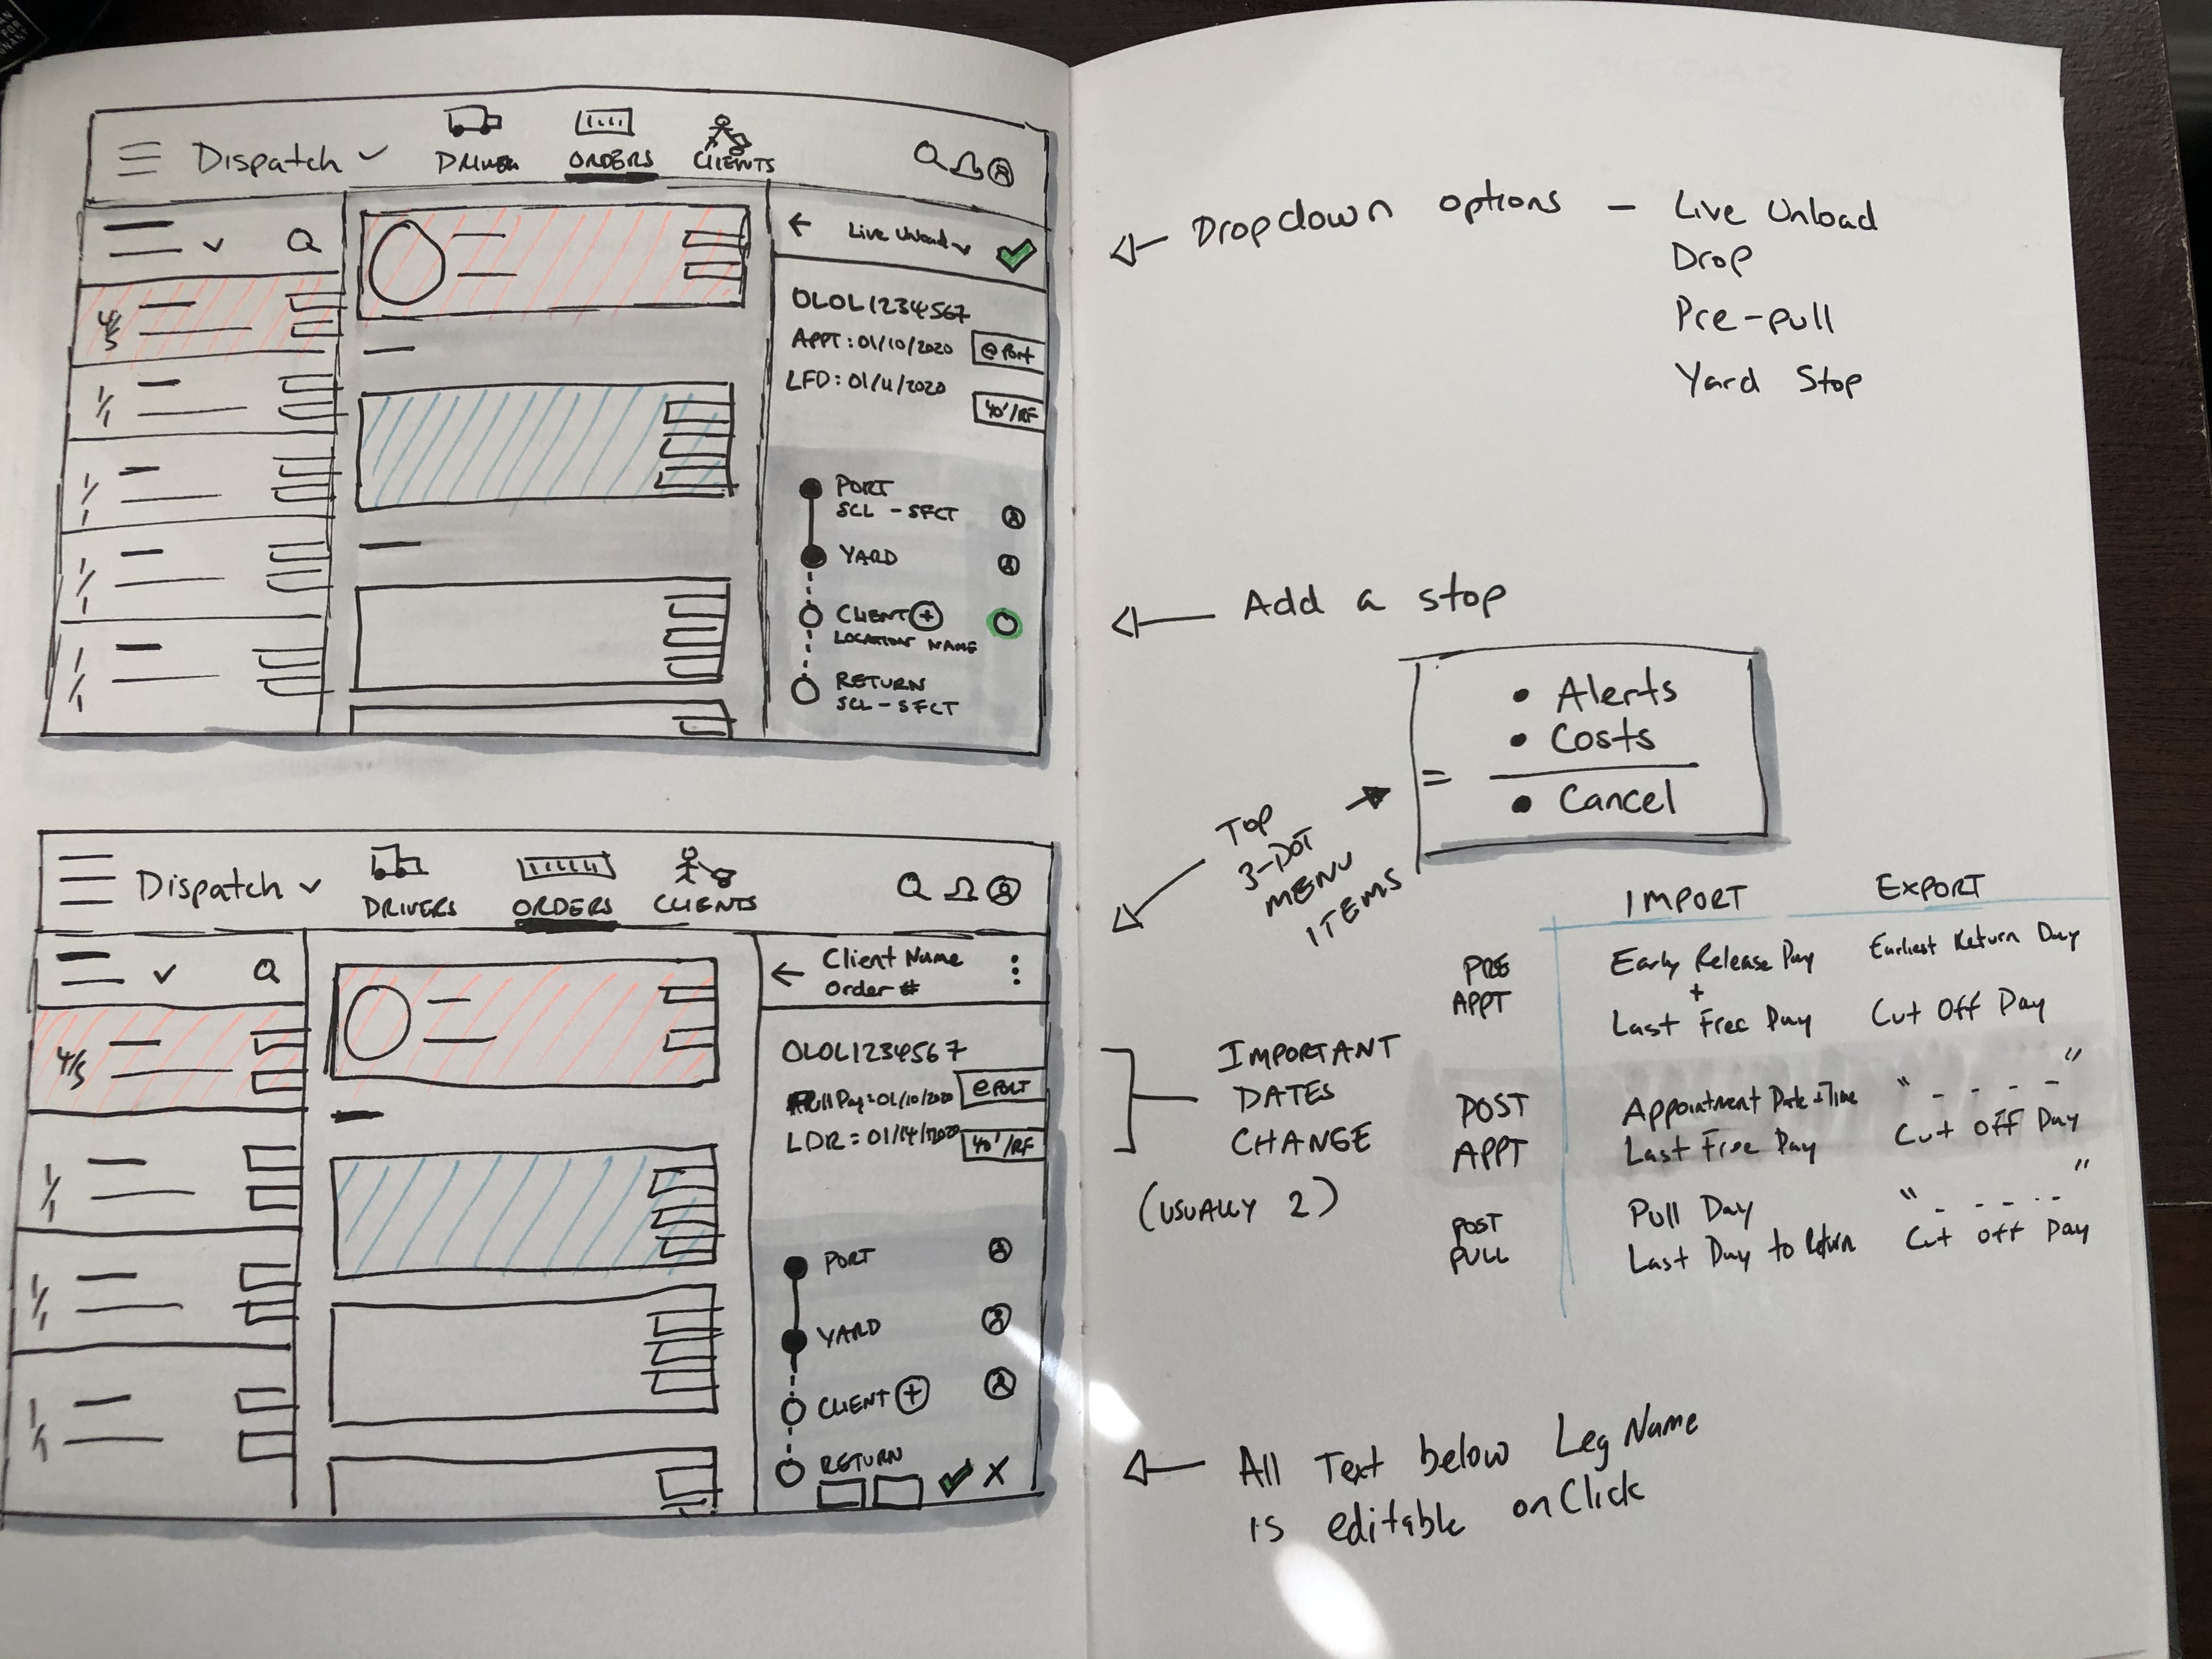 Dispatch
DRIVER
ORDERS
CLIENTS
Live Unload
4/5
1/1
1/1
1/1
1/1
OLOL1234567
APPT: 01/10/2020
@ Port
LFD: 01/11/2020
40'/RF
PORT
SCL - SFCT
YARD
CLIENT +
LOCATION NAME
RETURN
SCL - SFCT
Dispatch
DRIVERS
ORDERS
CLIENTS
Client Name
Order #
4/5
1/1
1/1
1/1
OLOL1234567
Pull Day: 01/10/2020
@PORT
LDR = 01/14/2020
40'/RF
PORT
YARD
CLIENT +
RETURN
X
Dropdown options - Live Unload
Drop
Pre-pull
Yard Stop
Add a stop
• Alerts
• Costs
=
• Cancel
TOP
3-DOT
MENU
ITEMS
IMPORT EXPORT
PRE
APPT
Early Release Day Earliest Return Day
+
Last Free Day Cut Off Day
IMPORTANT
DATES
CHANGE
(USUALLY 2)
POST
APPT
Appointment Date + Time " - - - - "
Last Free Day Cut Off Day
POST
PULL
Pull Day " - - - - "
Last Day to Return Cut Off Day
All Text below Leg Name
is editable onClick